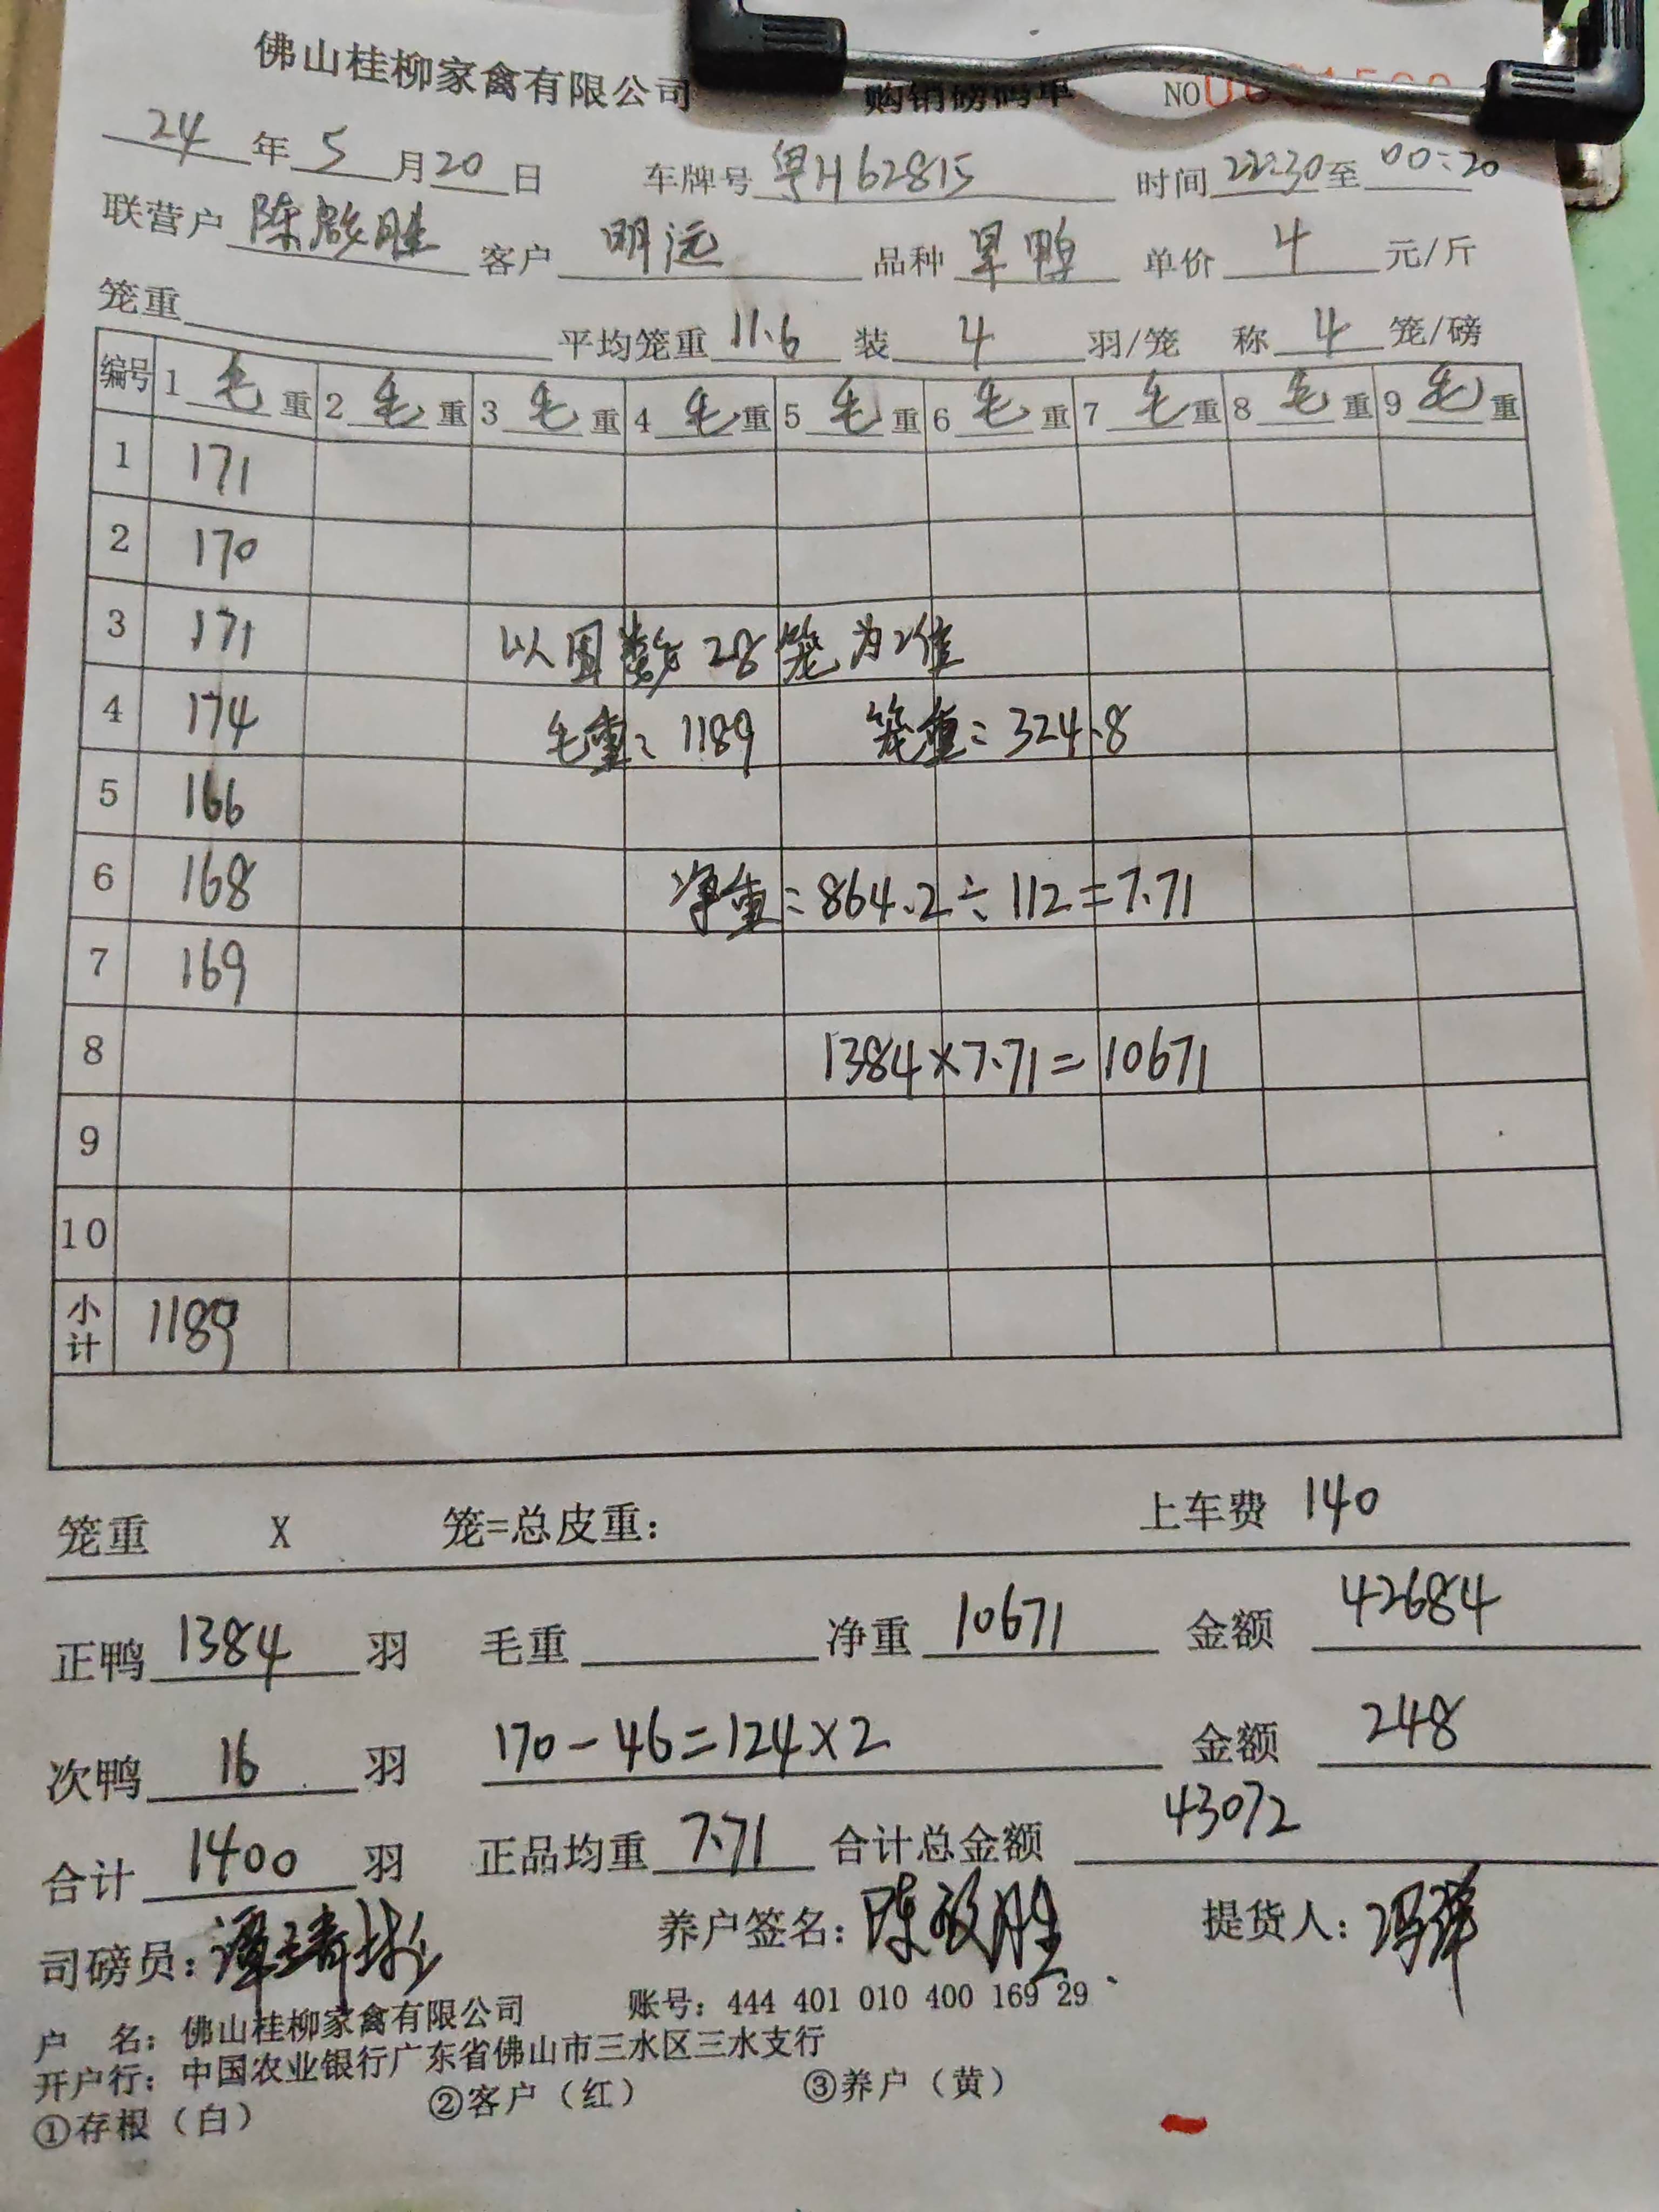 佛山桂柳家禽有限公司 购销磅码单 NO
24年5月20日 车牌号 粤H62815 时间 22:30至00:20
联营户 陈啟胜 客户 明远 品种 旱鸭 单价 4 元/斤
笼重 平均笼重 11.6 装 4 羽/笼 称 4 笼/磅
编号 1 毛 重 2 毛 重 3 毛 重 4 毛 重 5 毛 重 6 毛 重 7 毛 重 8 毛 重 9 毛 重
1 171
2 170
3 171 以围数28笼为准
4 174 毛重: 1189 笼重: 324.8
5 166
6 168 净重: 864.2÷112=7.71
7 169
8 1384×7.71=10671
9
10
小计 1189
笼重 X 笼=总皮重: 上车费 140
正鸭 1384 羽 毛重 净重 10671 金额 42684
次鸭 16 羽 170-46=124×2 金额 248
合计 1400 羽 正品均重 7.71 合计总金额 43072
司磅员: 养户签名: 陈啟胜 提货人:
户 名: 佛山桂柳家禽有限公司 账号: 444 401 010 400 169 29
开户行: 中国农业银行广东省佛山市三水区三水支行
①存根（白） ②客户（红） ③养户（黄）